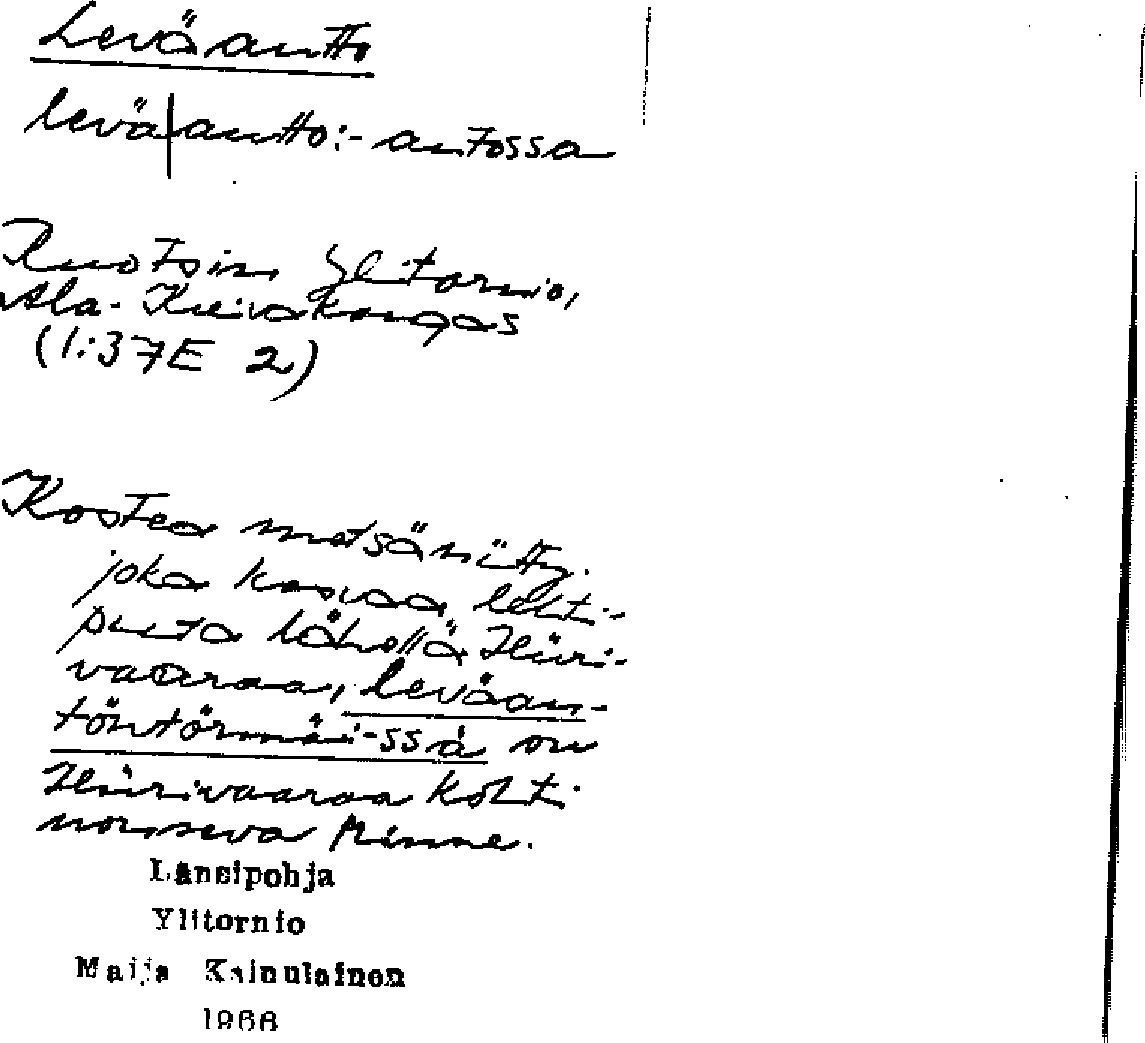 Leväautto
levä|autto:- autossa
Ruotsin Ylitornio,
Ala-Kuivakangas
(1:37E 2)
Kostea metsäniitty.
joka kasvaa lehti-
puita lähellä Hiiri-
vaaraa, leväau-
töntörmä:-ssä on
Hiirivaaraa kohti
nouseva rinne.
Länsipohja
Ylitornio
Maija Kainulainen
1966